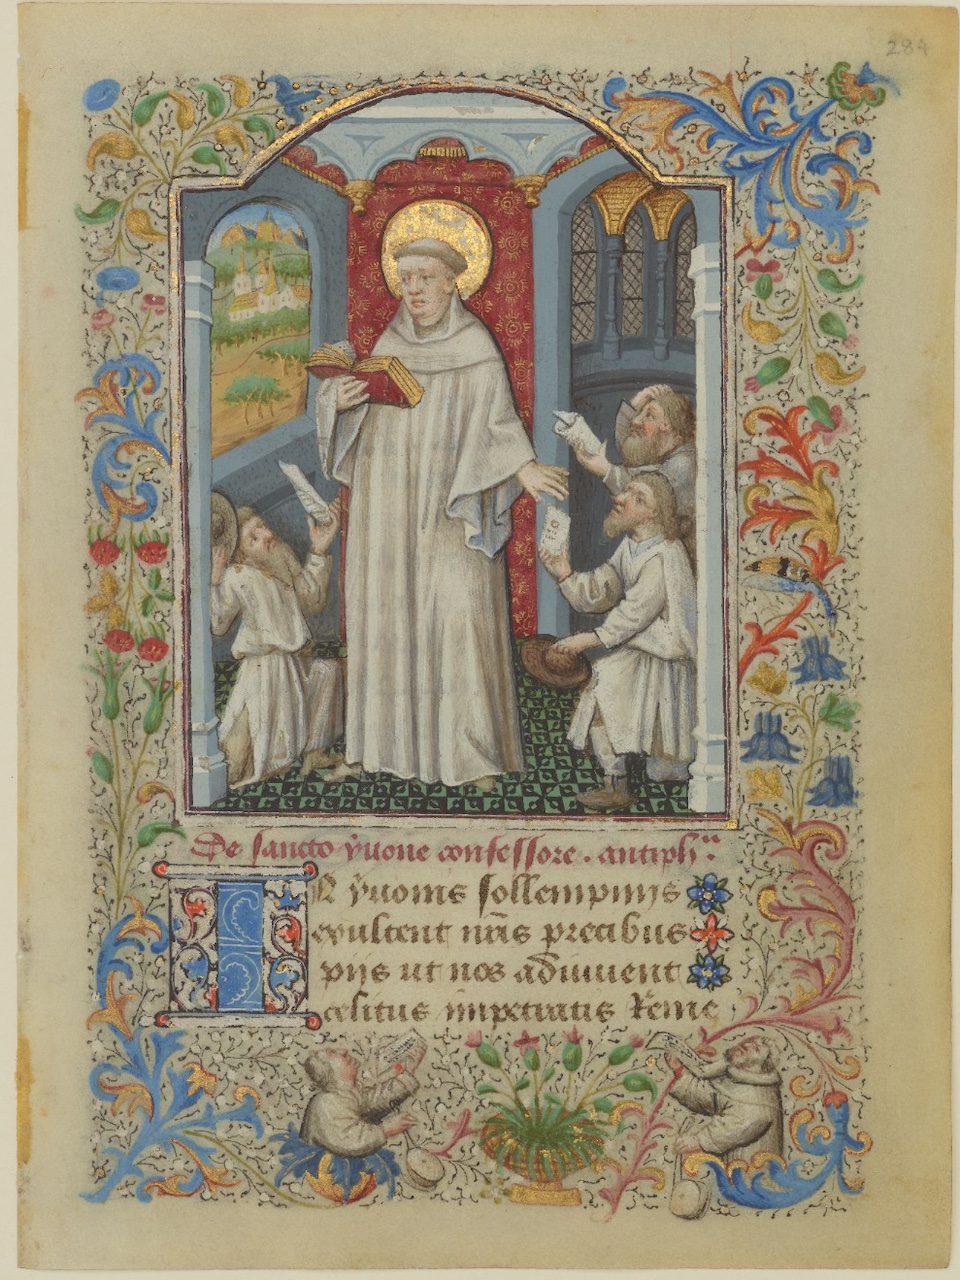 284
De sancto yuone confessore . antiph
In yuonis sollempnijs
exultent nr̄is precibus
pijs ut nos adiuuent
celitus impetratis